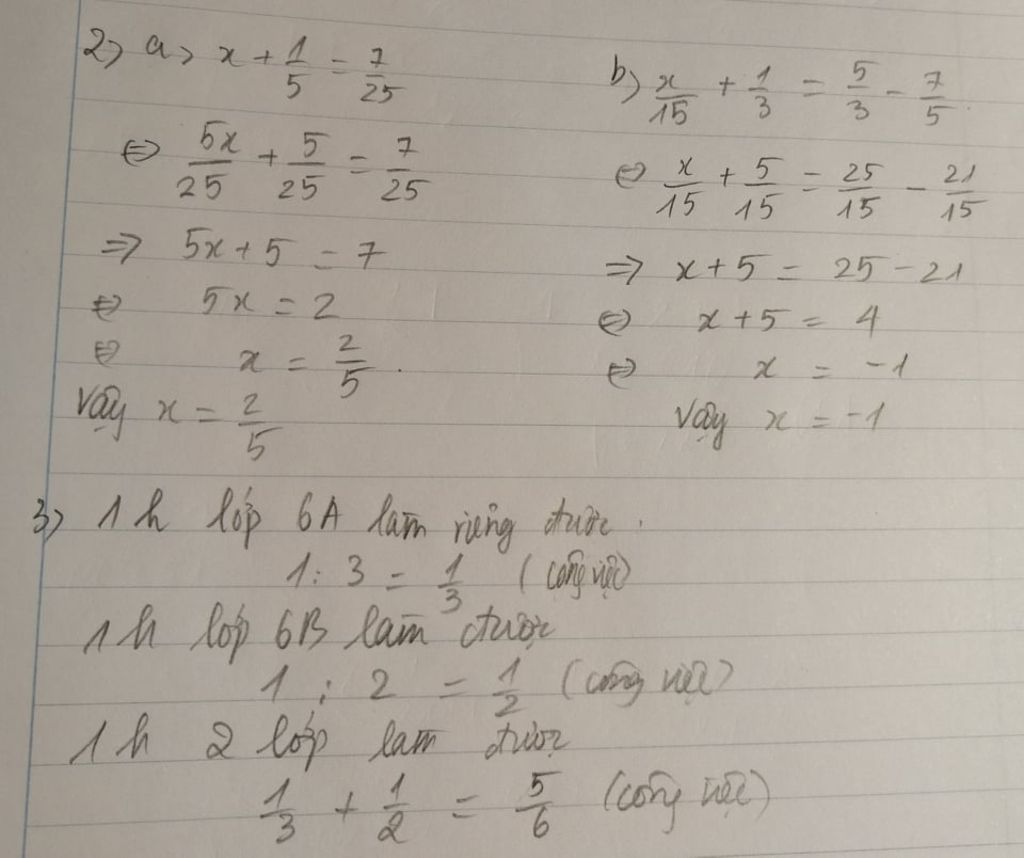 2) a) x + 1/5 = 7/25
⇔ 5x/25 + 5/25 = 7/25
⇒ 5x + 5 = 7
⇔ 5x = 2
⇔ x = 2/5.
Vậy x = 2/5
b) x/15 + 1/3 = 5/3 - 7/5.
⇔ x/15 + 5/15 = 25/15 - 21/15
⇒ x + 5 = 25 - 21
⇔ x + 5 = 4
⇔ x = -1
Vậy x = -1
3) 1h lớp 6A làm riêng được.
1 : 3 = 1/3 (công việc)
1h lớp 6B làm được
1 : 2 = 1/2 (công việc)
1h 2 lớp làm được
1/3 + 1/2 = 5/6 (công việc)